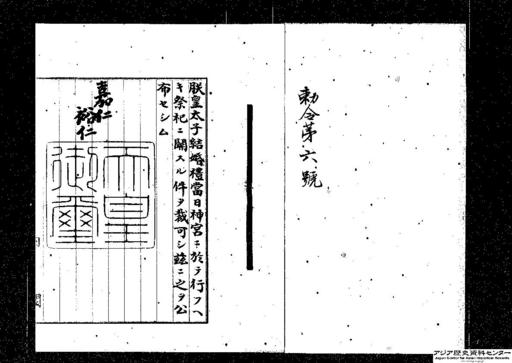 勅令第六號
朕皇太子結婚禮當日神宮ニ於テ行フヘ
キ祭祀ニ關スル件ヲ裁可シ茲ニ之ヲ公
布セシム
嘉仁
裕仁
天皇
御璽
アジア歴史資料センター
Japan Center for Asian Historical Records